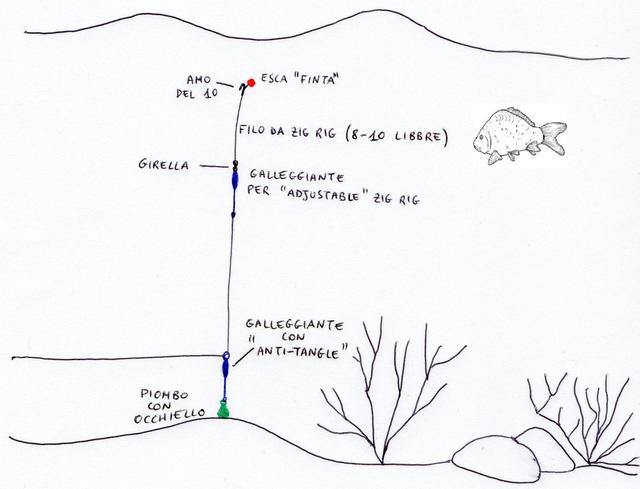 AMO
DEL 10
ESCA "FINTA"
FILO DA ZIG RIG (8-10 LIBBRE)
GIRELLA
GALLEGGIANTE
PER "ADJUSTABLE" ZIG RIG
GALLEGGIANTE
CON
"ANTI-TANGLE"
PIOMBO
CON
OCCHIELLO